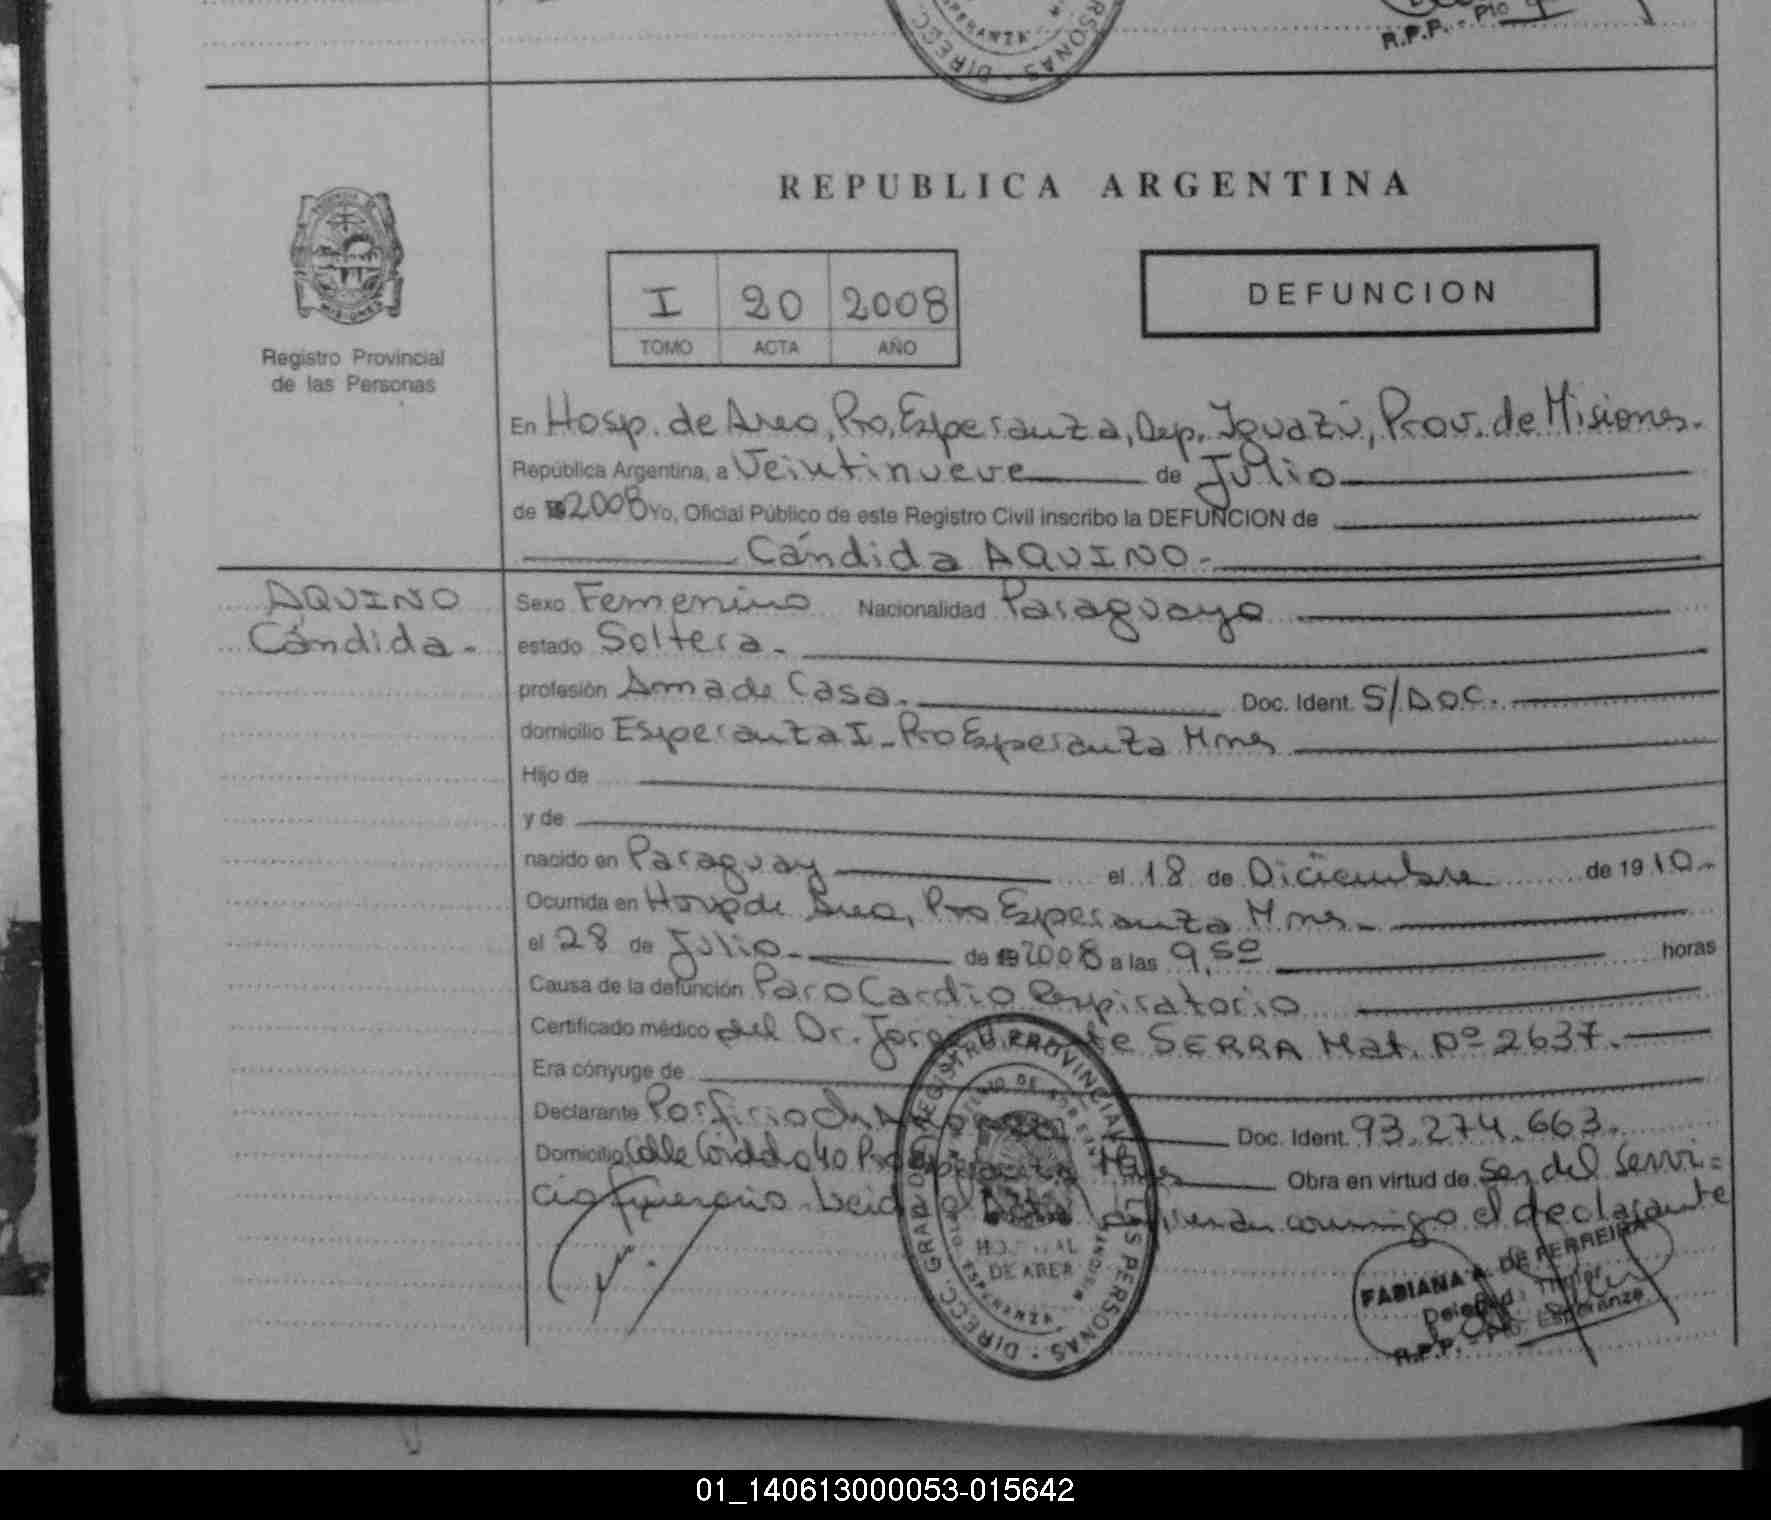 ESPERANZA
DIRECC. PERSONAS
R.P.P. - Pto
REPUBLICA ARGENTINA
I 20 2008
TOMO ACTA AÑO
DEFUNCION
MISIONES
Registro Provincial
de las Personas
En Hosp. de Area, Pto. Esperanza, Dep. Iguazú, Prov. de Misiones.
República Argentina, a Veintinueve de Julio
de 2008 Yo, Oficial Público de este Registro Civil inscribo la DEFUNCION de
Cándida AQUINO.
AQUINO
Cándida.
Sexo Femenino Nacionalidad Paraguaya
estado Soltera.
profesión Ama de Casa. Doc. Ident. S/DOC.
domicilio Esperanza I - Pto Esperanza Mnes
Hijo de
y de
nacido en Paraguay el 18 de Diciembre de 1910.
Ocurrida en Hosp de Area, Pto Esperanza Mnes.
el 28 de Julio. de 2008 a las 9,50 horas
Causa de la defunción Paro Cardio Respiratorio
Certificado médico del Dr. Jorge SERRA Mat. Nº 2637.
Era cónyuge de
Declarante Porfirio Doc. Ident. 93.274.663.
Domicilio Calle Córdoba 40 Pto Esperanza Mnes Obra en virtud de Ser del Servi=
cio Funerario. Leida firman conmigo el declarante
REGISTRO PROVINCIAL DE LAS PERSONAS - DIRECC. GRAL.
HOSPITAL
DE AREA
ESPERANZA - MISIONES
FABIANA A. DE FERREIRA
Delegada Titular
R.P.P. - Pto. Esperanza
01_140613000053-015642